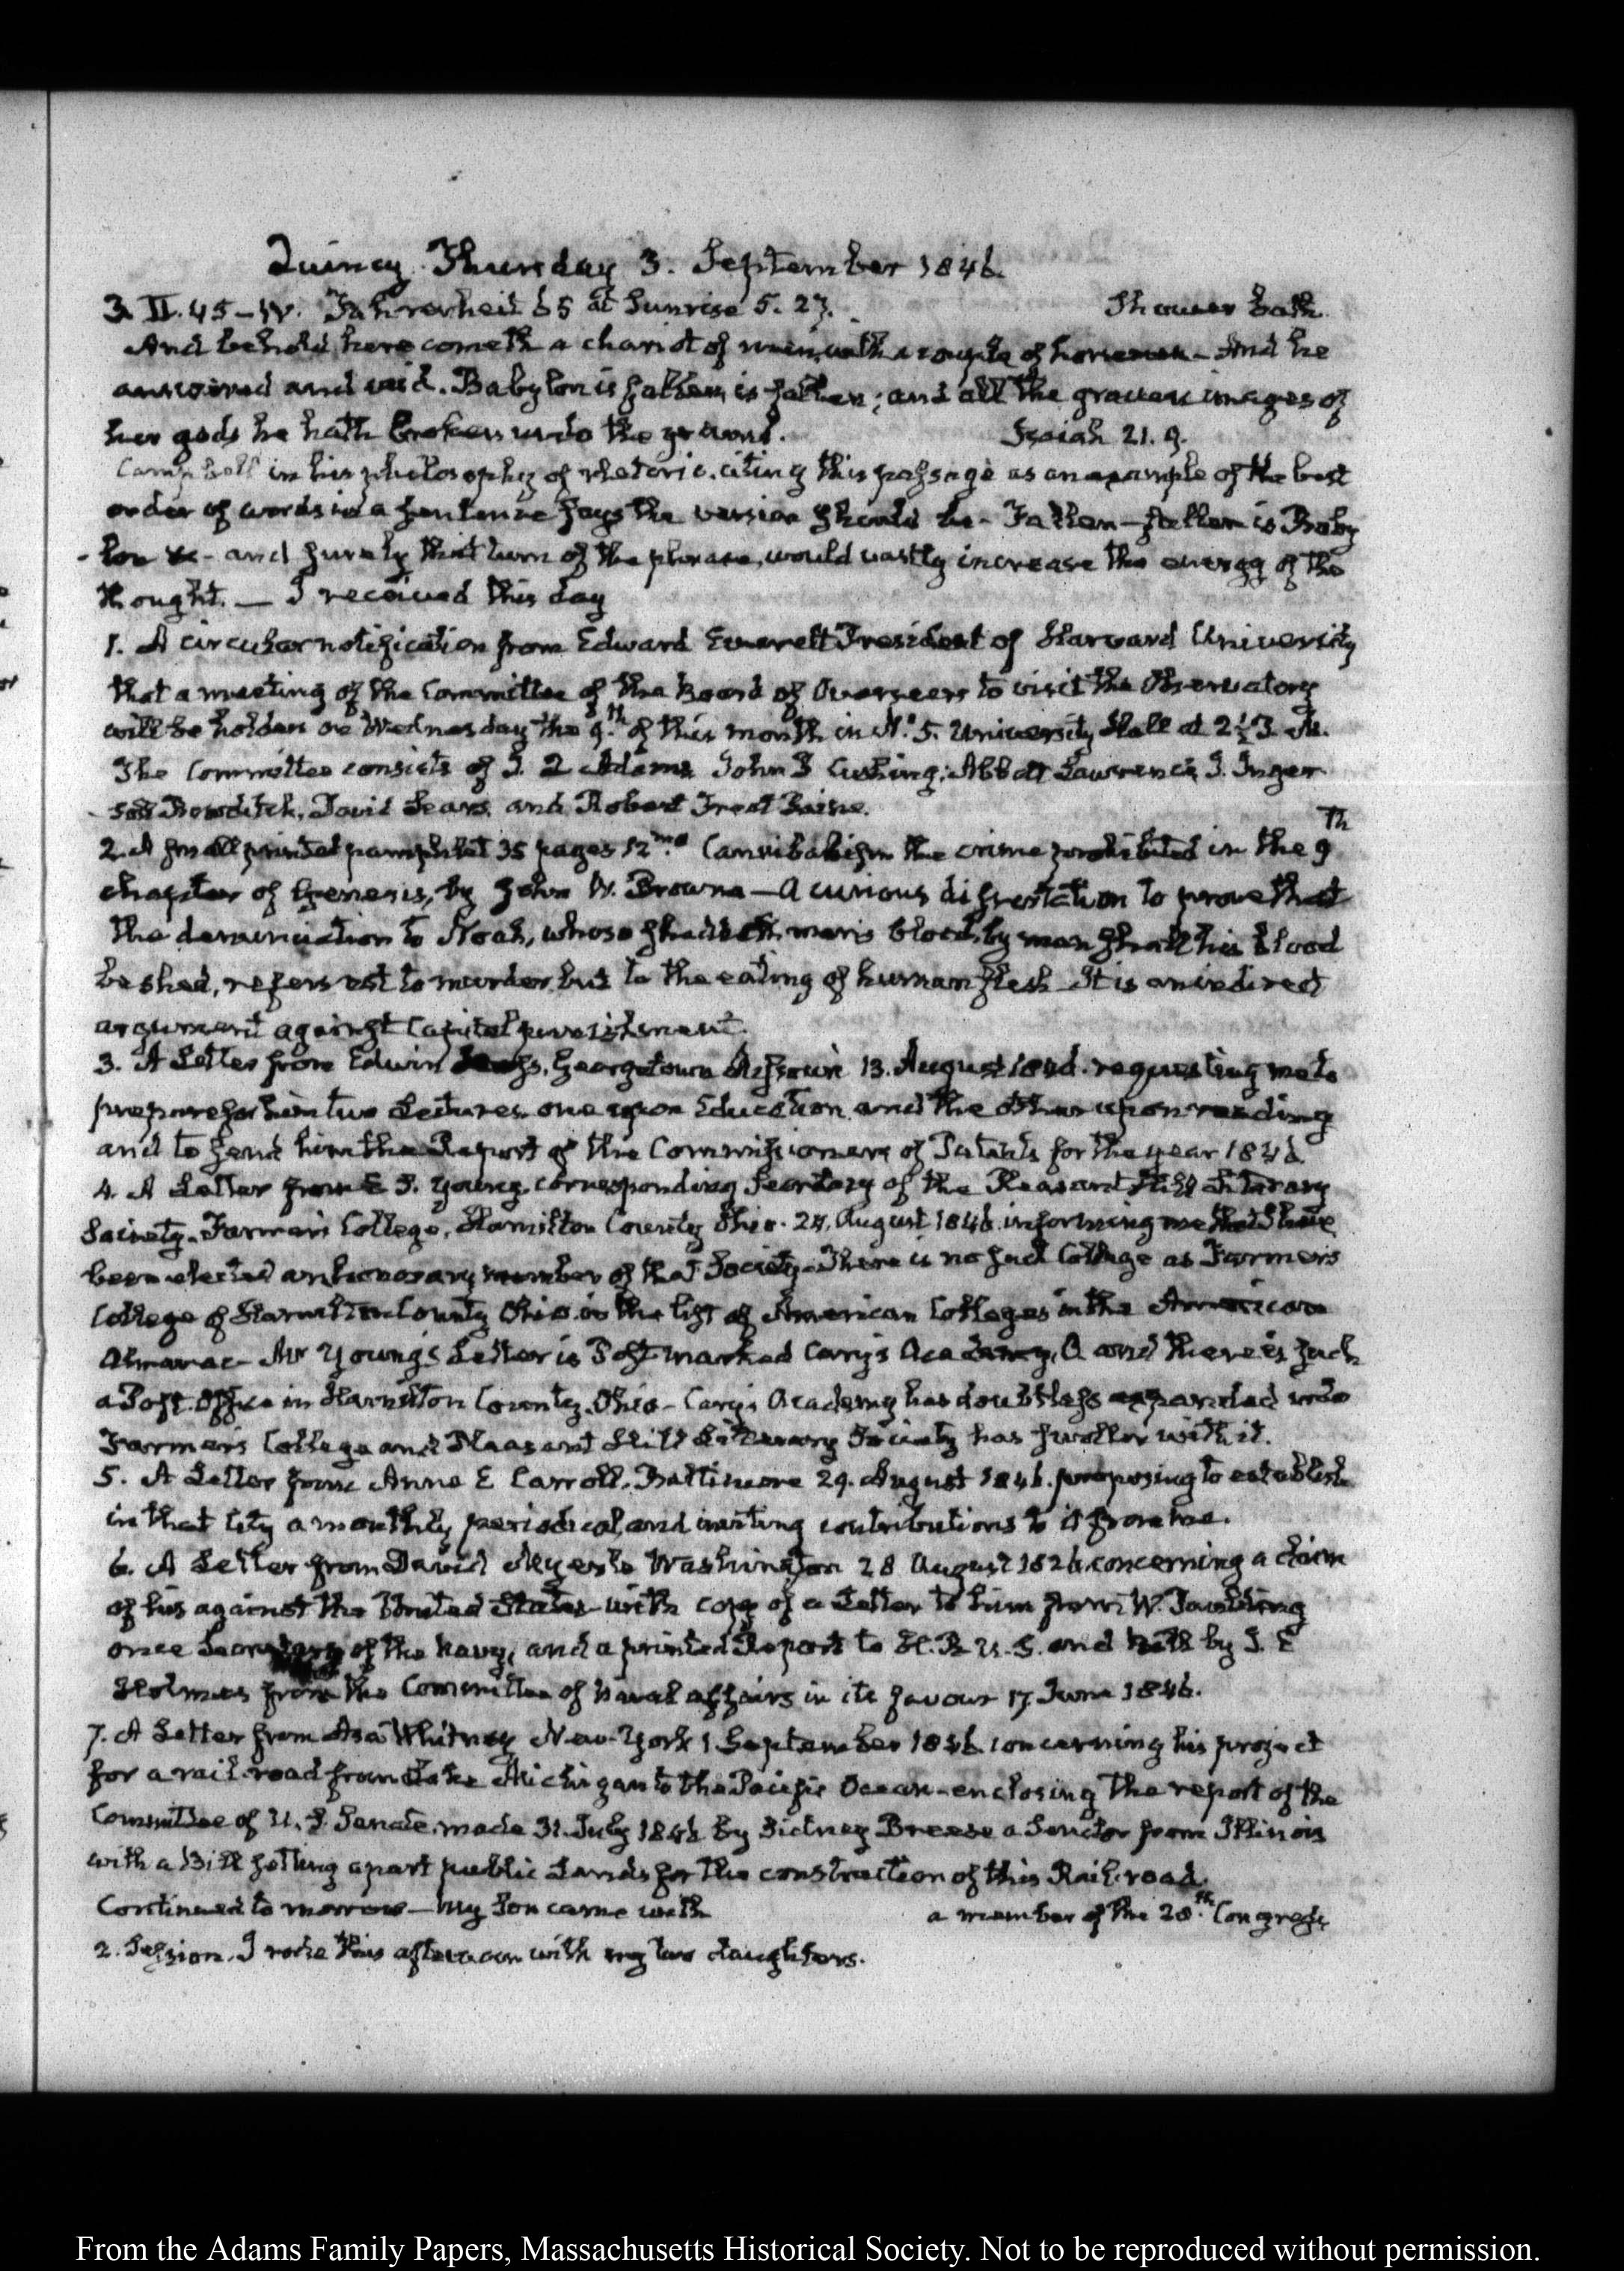 Quincy. Thursday 3. September 1846.
3. II. 45 – IV. Fahrenheit 65 at Sunrise 5. 27. Shower bath.
And behold, here cometh a chariot of men, with a couple of horsemen – And he
answered and said. Babylon is fallen, is fallen; and all the graven images of
her gods he hath broken unto the ground. Isaiah 21. 9.
Campbell in his philosophy of rhetoric, citing this passage as an example of the best
order of words in a sentence says the version should be – Fallen – fallen is Baby
-lon &c – and surely that turn of the phrase, would vastly increase the energy of the
thought. — I received this day
1. A circular notification from Edward Everett President of Harvard University
that a meeting of the Committee of the Board of Overseers to visit the Observatory
will be holden on Wednesday the 9th. of this month in No. 5. University Hall at 2½ P. M.
The Committee consists of J. Q Adams John P Cushing, Abbott Lawrence, J. Inger
-soll Bowditch, David Sears, and Robert Treat Paine.
2. A small printed pamphlet 35 pages 12mo. Cannibalism the crime prohibited in the 9th
chapter of Genesis, by John W. Browne — A curious dissertation to prove that
the denunciation to Noah, whoso sheddeth man's blood, by man shall his blood
be shed, refers not to murder, but to the eating of human flesh – It is an indirect
argument against Capital punishment.
3. A Letter from Edwin Georgetown Missouri 13. August 1846. requesting me to
prepare for him two Lectures, one upon Education and the other upon reading
and to send him the Report of the Commissioners of Patents for the year 1846.
4. A Letter from E J. Young, corresponding Secretary of the Pleasant Hill Literary
Society, Farmers College, Hamilton County Ohio. 24. August 1846. informing me that I have
been elected an honorary member of that Society – There is no such College as Farmers
College of Hamilton County Ohio in the list of American Colleges in the American
Almanac – Mr Young's Letter is Post marked Cary's Academy, O. and there is such
a Post. Office in Hamilton County. Ohio – Cary's Academy has doubtless expanded into
Farmers College and Pleasant Hill Literary Society has swollen with it.
5. A Letter from Anna E Carroll. Baltimore 29. August 1846. proposing to establish
in that City a monthly periodical, and inviting contributions to it from me.
6. A Letter from David Myerle Washington 28 August 1846 concerning a claim
of his against the United States – with copy of a Letter to him from W. Paulding
once Secretary of the Navy, and a printed Report to H. R. U. S. and by J. E
Holmes from the Committee of Naval affairs in its favour 17. June 1846.
7. A Letter from Asa Whitney New-York 1. September 1846 concerning his project
for a rail-road from Lake Michigan to the Pacific Ocean – enclosing the report of the
Committee of U. S. Senate, made 31. July 1846 by Sidney Breese a Senator from Illinois
with a Bill setting apart public Lands for the construction of this Rail-road.
Continued to morrow – My Son came with a member of the 28th. Congress
2. Session. I rode this afternoon with my two daughters.
From the Adams Family Papers, Massachusetts Historical Society. Not to be reproduced without permission.